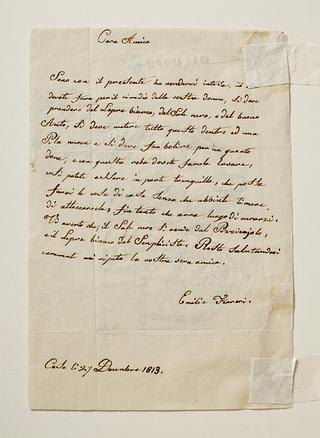 Cara Amica
Sono con il presente ha rendervi intesa, il
dovete fare per il rimedio delle vostre donne, si deve
prendere del Lepre bianco, del Sale nero, e del buono
Aceto, si deve metere tutto questo dentro ad una
Pila nuova e si deve far bolire per un quarto
d'ora, e con quella roba dovete farele lavare,
così potete essere in parte tranquillo, che possa
farvi le corte di carta senza che abbiate timore
di attaccarvele, fin tanto che avra luogo di curarsi.
Vi avverto che, il Sale nero si vende dal Pizzicajolo,
e il Lepre bianco dal Semplicista, Resto salutandovi
caramente mi ripeto la vostra vera amica.
Emilia
Casta li 27 Decembre 1813.